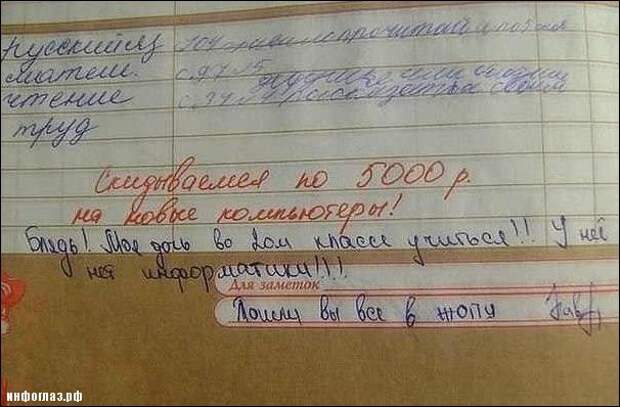 Русский яз
матем.
чтение
труд
Скидываемся по 5000 р.
на новые компьютеры!
Блядь! Моя дочь во 2ом классе учиться!!! У неё
нет информатики!!!
Для заметок
Пошли вы все в жопу
инфоглаз.рф